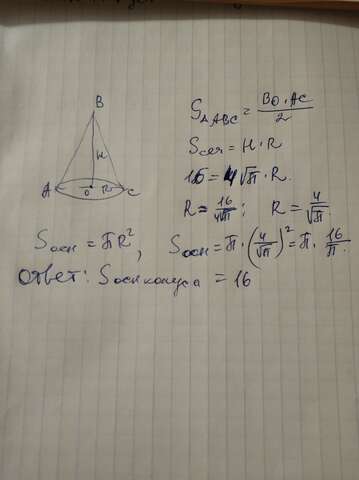 B
H
A O R C
S△ABC = BO·AC/2
Sсеч = H·R
16 = 4√π·R.
R = 16/4√π; R = 4/√π.
Sосн = πR², Sосн = π·(4/√π)² = π·16/π.
Ответ: Sосн конуса = 16